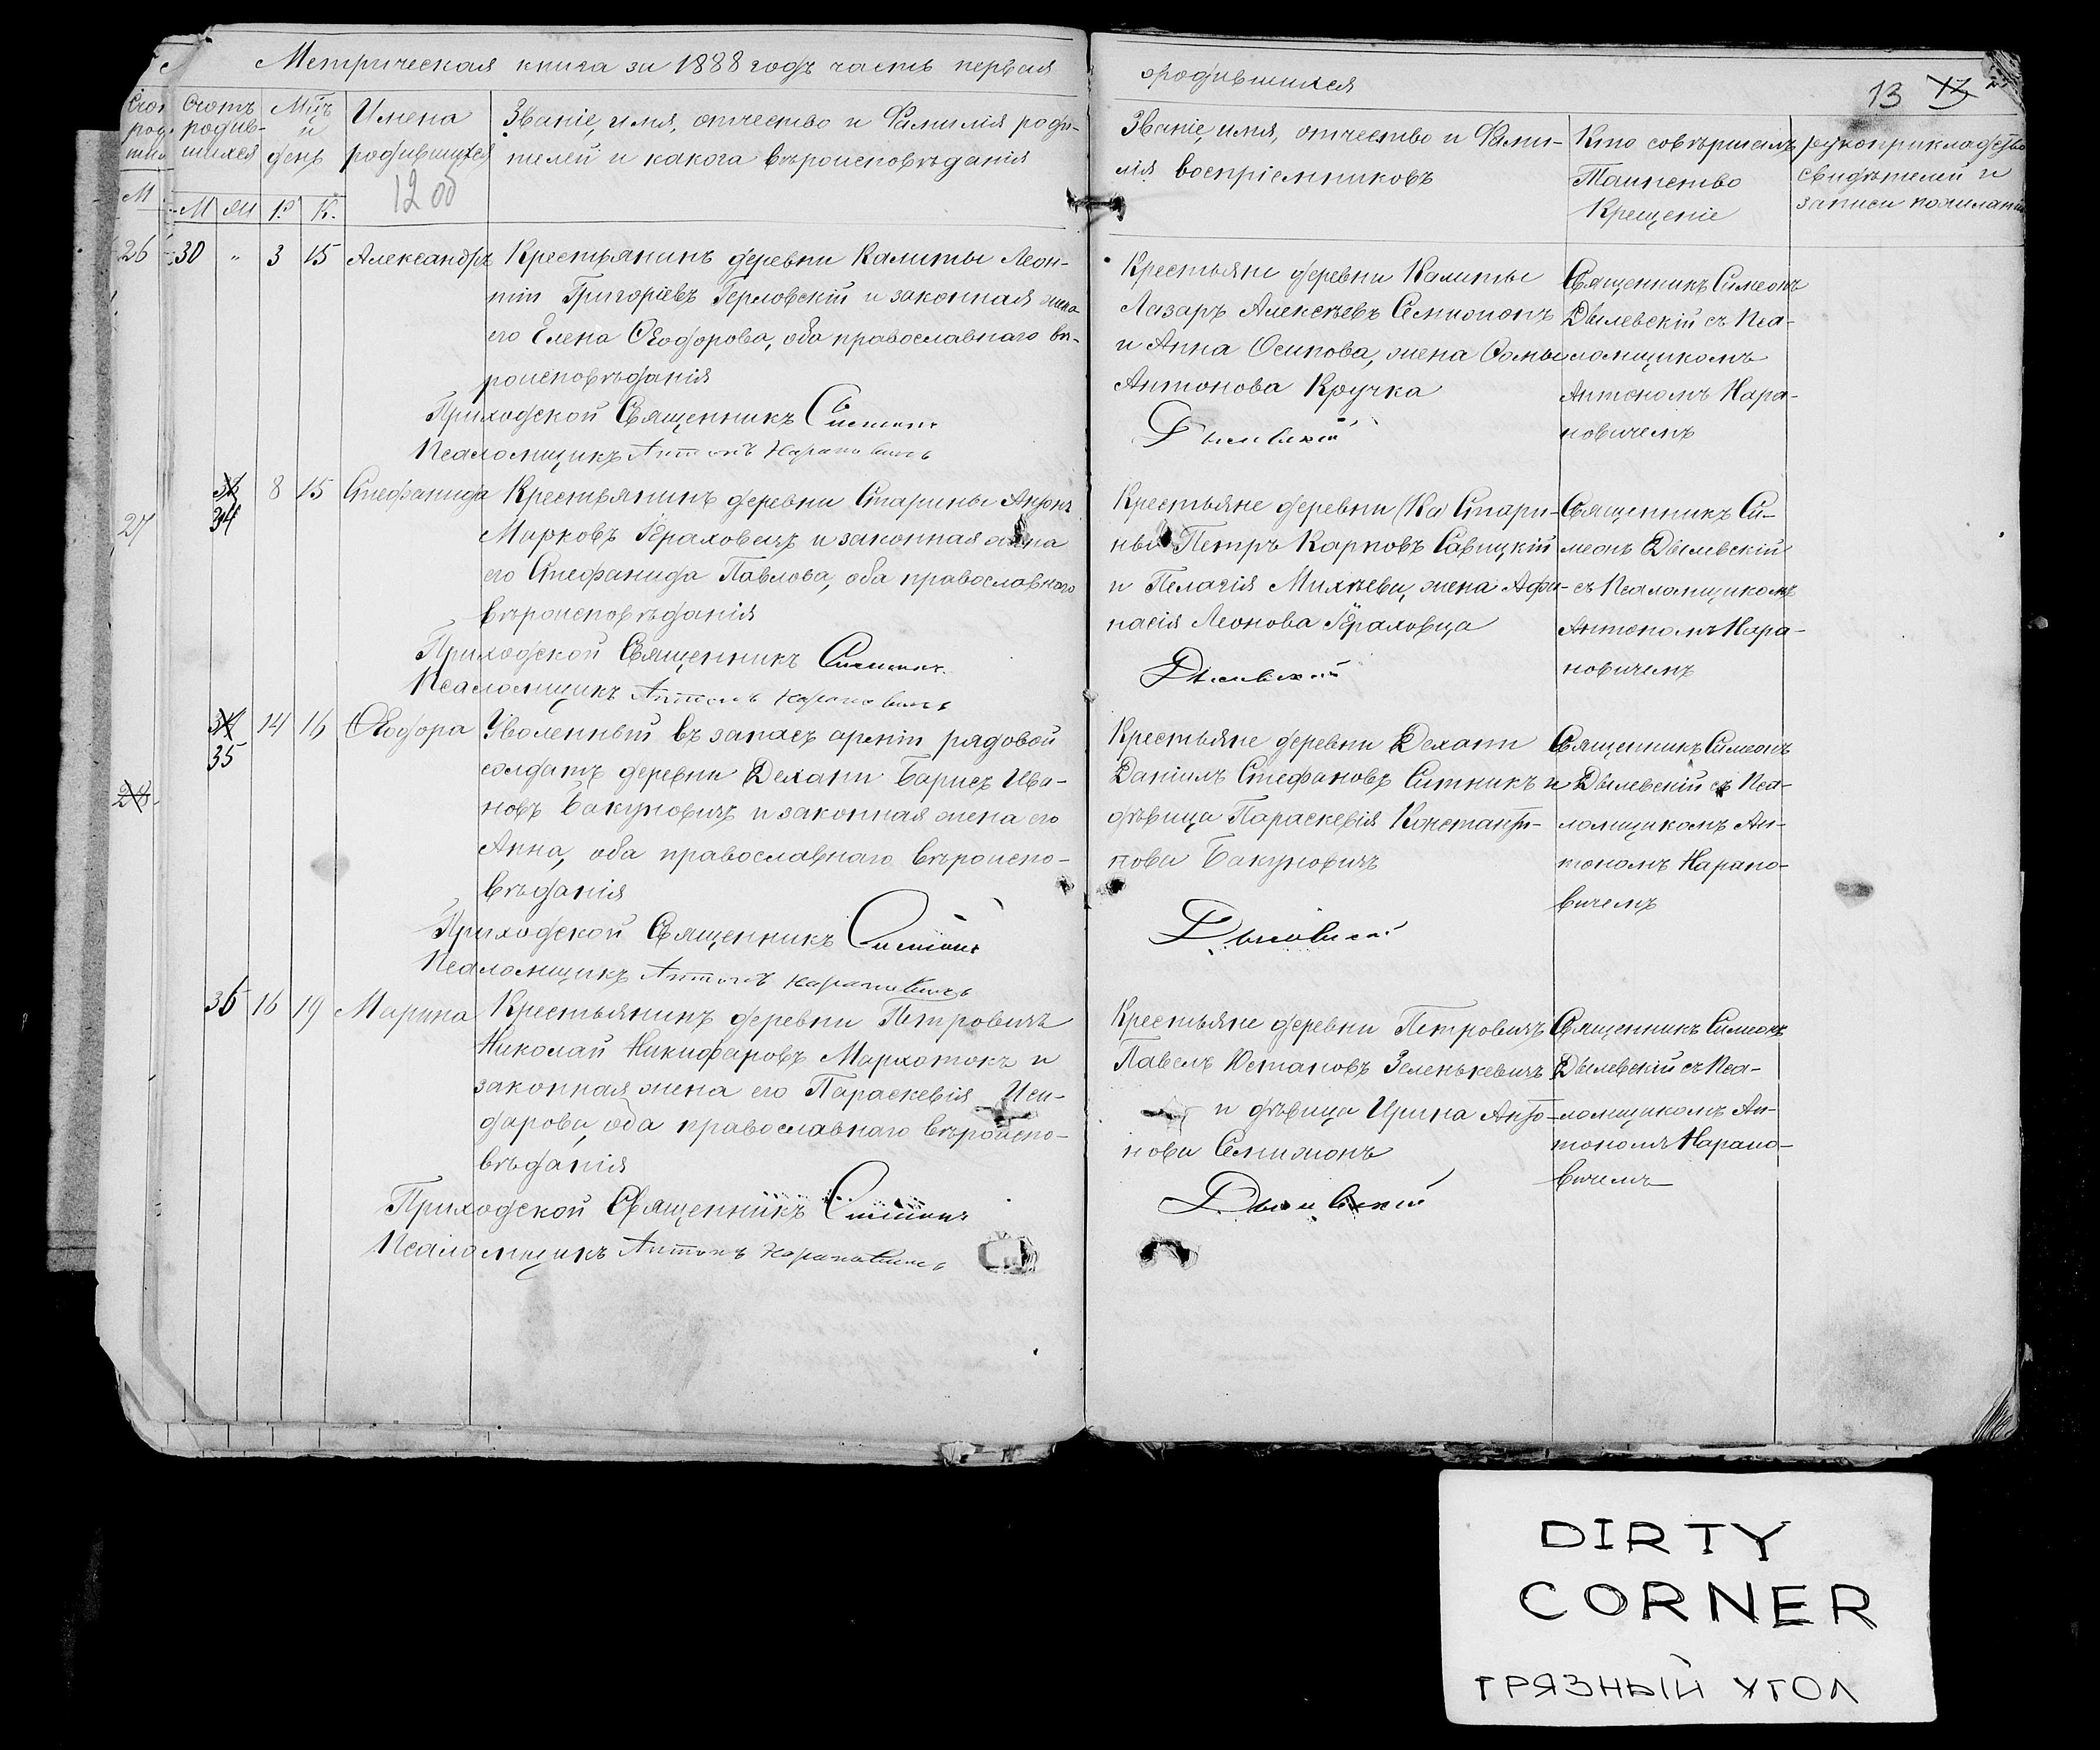 Метрическая книга за 1888 годъ часть первая
о родившихся
13
Счотъ родив-шихся
М Ж
Мцъ и день
Р. К.
Имена родившихся
12 об
Званіе, имя, отчество и Фамилія роди-
телей и какога вѣроисповѣданія
Званіе, имя, отчество и Фами-
лія воспріемниковъ
Кто совѣршалъ
Таинство
Крещеніе
рукоприкладство
свидѣтелей и
записи
26
30 " 3 15 Александръ
Крестьянинъ деревни Калиты Леон-
тій Григоріевъ Герловскій и законная жена
его Елена Ѳеодорова, оба православнаго вѣ-
роисповѣданія
Приходской Священникъ Симеонъ
Псаломщикъ Антонъ Нарановичъ
Крестьяне деревни Калиты
Лазаръ Алексѣевъ Семижонъ
и Анна Осипова, жена Ѳомы
Антонова Кручка
Дылевскій
Священникъ Симеонъ
Дылевскій съ Пса-
ломщикомъ
Антономъ Нара-
новичемъ
27
34 8 15 Стефанида
Крестьянинъ деревни Старины Антонъ
Марковъ Гераховецъ и законная жена
его Стефанида Павлова, оба православнаго
вѣроисповѣданія
Приходской Священникъ Симеонъ
Псаломщикъ Антонъ Нарановичъ
Крестьяне деревни (Ка Стари-
ны Петръ Карповъ Савицкій
и Пелагія Михѣева, жена Афа-
насія Леонова Гераховца
Дылевскій
Священникъ Си-
меонъ Дылевскій
съ Псаломщикомъ
Антономъ Нара-
новичемъ
28
34
35 14 16 Ѳеодора
Уволенный въ запасъ арміи рядовой
солдатъ деревни Дехани Барисъ Ива-
новъ Бакуновичъ и законная жена его
Анна, оба православнаго вѣроиспо-
вѣданія
Приходской Священникъ Симеонъ
Псаломщикъ Антонъ Нарановичъ
Крестьяне деревни Дехани
Даніилъ Стефановъ Ситникъ и
дѣвица Параскевія Константи-
нова Бакуновичъ
Дылевскій
Священникъ Симеонъ
Дылевскій съ Пса-
ломщикомъ Ан-
тономъ Нарано-
вичемъ
36 16 19 Марина
Крестьянинъ деревни Петровичъ
Николай Никифаровъ Мархотокъ и
законная жена его Параскевія Иси-
дарова, оба православнаго вѣроиспо-
вѣданія
Приходской Священникъ Симеонъ
Псаломщикъ Антонъ Нарановичъ
Крестьяне деревни Петровичъ
Павелъ Юстановъ Зеленькевичъ
и дѣвица Ирина Анто-
нова Семижонъ
Дылевскій
Священникъ Симеонъ
Дылевскій съ Пса-
ломщикомъ Ан-
тономъ Нарано-
вичемъ
DIRTY
CORNER
ГРЯЗНЫЙ УГОЛ